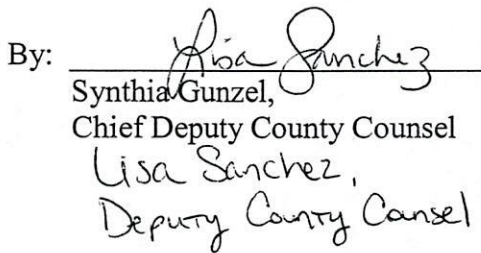 By: Lisa Sanchez
Synthia Gunzel,
Chief Deputy County Counsel
Lisa Sanchez,
Deputy County Counsel